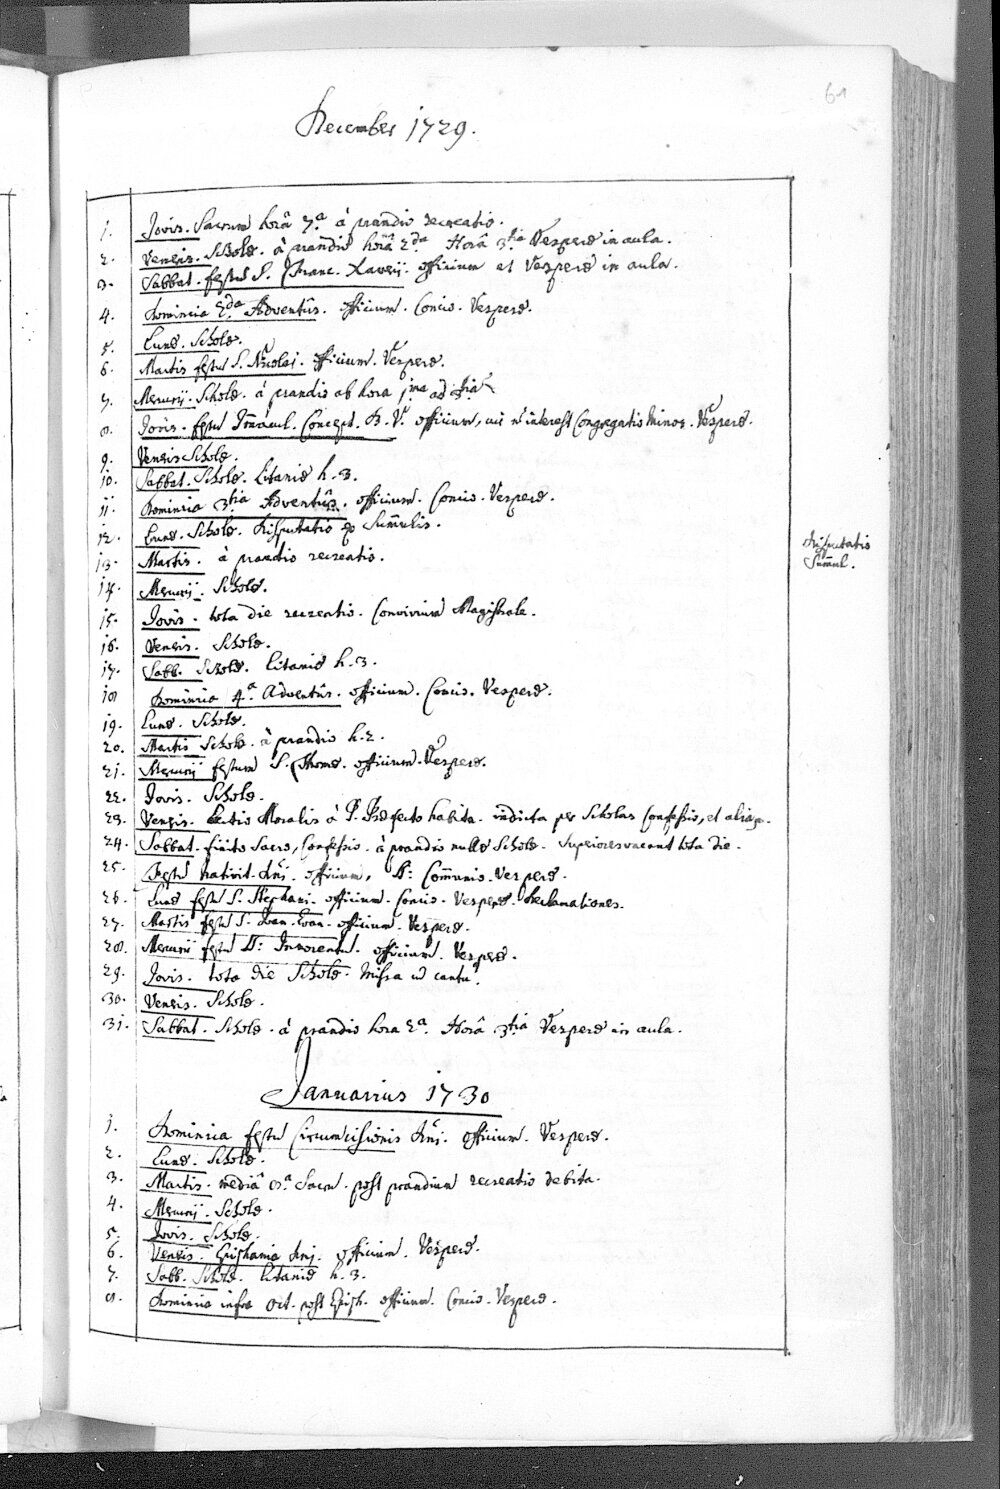 61
December 1729.
1. Jovis. Sacrum horâ 7.a à prandio recreatio.
2. Veneris. Scholæ. à prandio horâ 2.da Horâ 3.tia Vesperæ in aula.
3. Sabbat. festu S. Franc. Xaverij. officium et Vesperæ in aula.
4. Dominica 2.da Adventûs. officium. Concio. Vesperæ.
5. Lunæ. Scholæ.
6. Martis festu S. Nicolai. officium. Vesperæ.
7. Mercurij. Scholæ. à prandio ab hora 1.ma ad 3.tia
8. Jovis. festu Immacul. Concept. B. V. officium, cui interest Congregatio Minor. Vesperæ.
9. Veneris Scholæ.
10. Sabbat. Scholæ. Litaniæ h. 3.
11. Dominica 3.tia Adventûs. officium. Concio. Vesperæ.
12. Lunæ. Scholæ. Disputatio ex Summulis.
Disputatio
Summul.
13. Martis. à prandio recreatio.
14. Mercurij. Scholæ.
15. Jovis. tota die recreatio. Convivium Magistrale.
16. Veneris. Scholæ.
17. Sabb. Scholæ. Litaniæ h. 3.
18 Dominica 4.a Adventûs. officium. Concio. Vesperæ.
19. Lunæ. Scholæ.
20. Martis Scholæ. à prandio h. 2.
21. Mercurij festum S. Thomæ. officium. Vesperæ.
22. Jovis. Scholæ.
23. Veneris. Lectio Moralis à P. Præfecto habita. indicta per Scholas Confessio, et alia
24. Sabbat. finito Sacro, Confessio. à prandio nullæ Scholæ. Superiores vacant tota die.
25. Festu Nativit. Dni. officium, Communio. Vesperæ.
26. Lunæ festu S. Stephani. officium. Concio. Vesperæ. Declamationes.
27. Martis festu S. Joan. Evan. officium. Vesperæ.
28. Mercurij festu SS: Innocentu. officium. Vesperæ.
29. Jovis. tota die Scholæ. Missa in cantu.
30. Veneris. Scholæ.
31. Sabbat. Scholæ. à prandio hora 2.a Horâ 3.tia Vesperæ in aula.
Januarius 1730
1. Dominica festu Circumcisionis Dni. officium. Vesperæ.
2. Lunæ. Scholæ.
3. Martis. mediâ 8.a Sacru. post prandium recreatio debita.
4. Mercurij. Scholæ.
5. Jovis. Scholæ.
6. Veneris. Epiphania Dni. officium. Vesperæ.
7. Sabb. Scholæ. Litaniæ h. 3.
8. Dominica infra Oct. post Epiph. officium. Concio. Vesperæ.